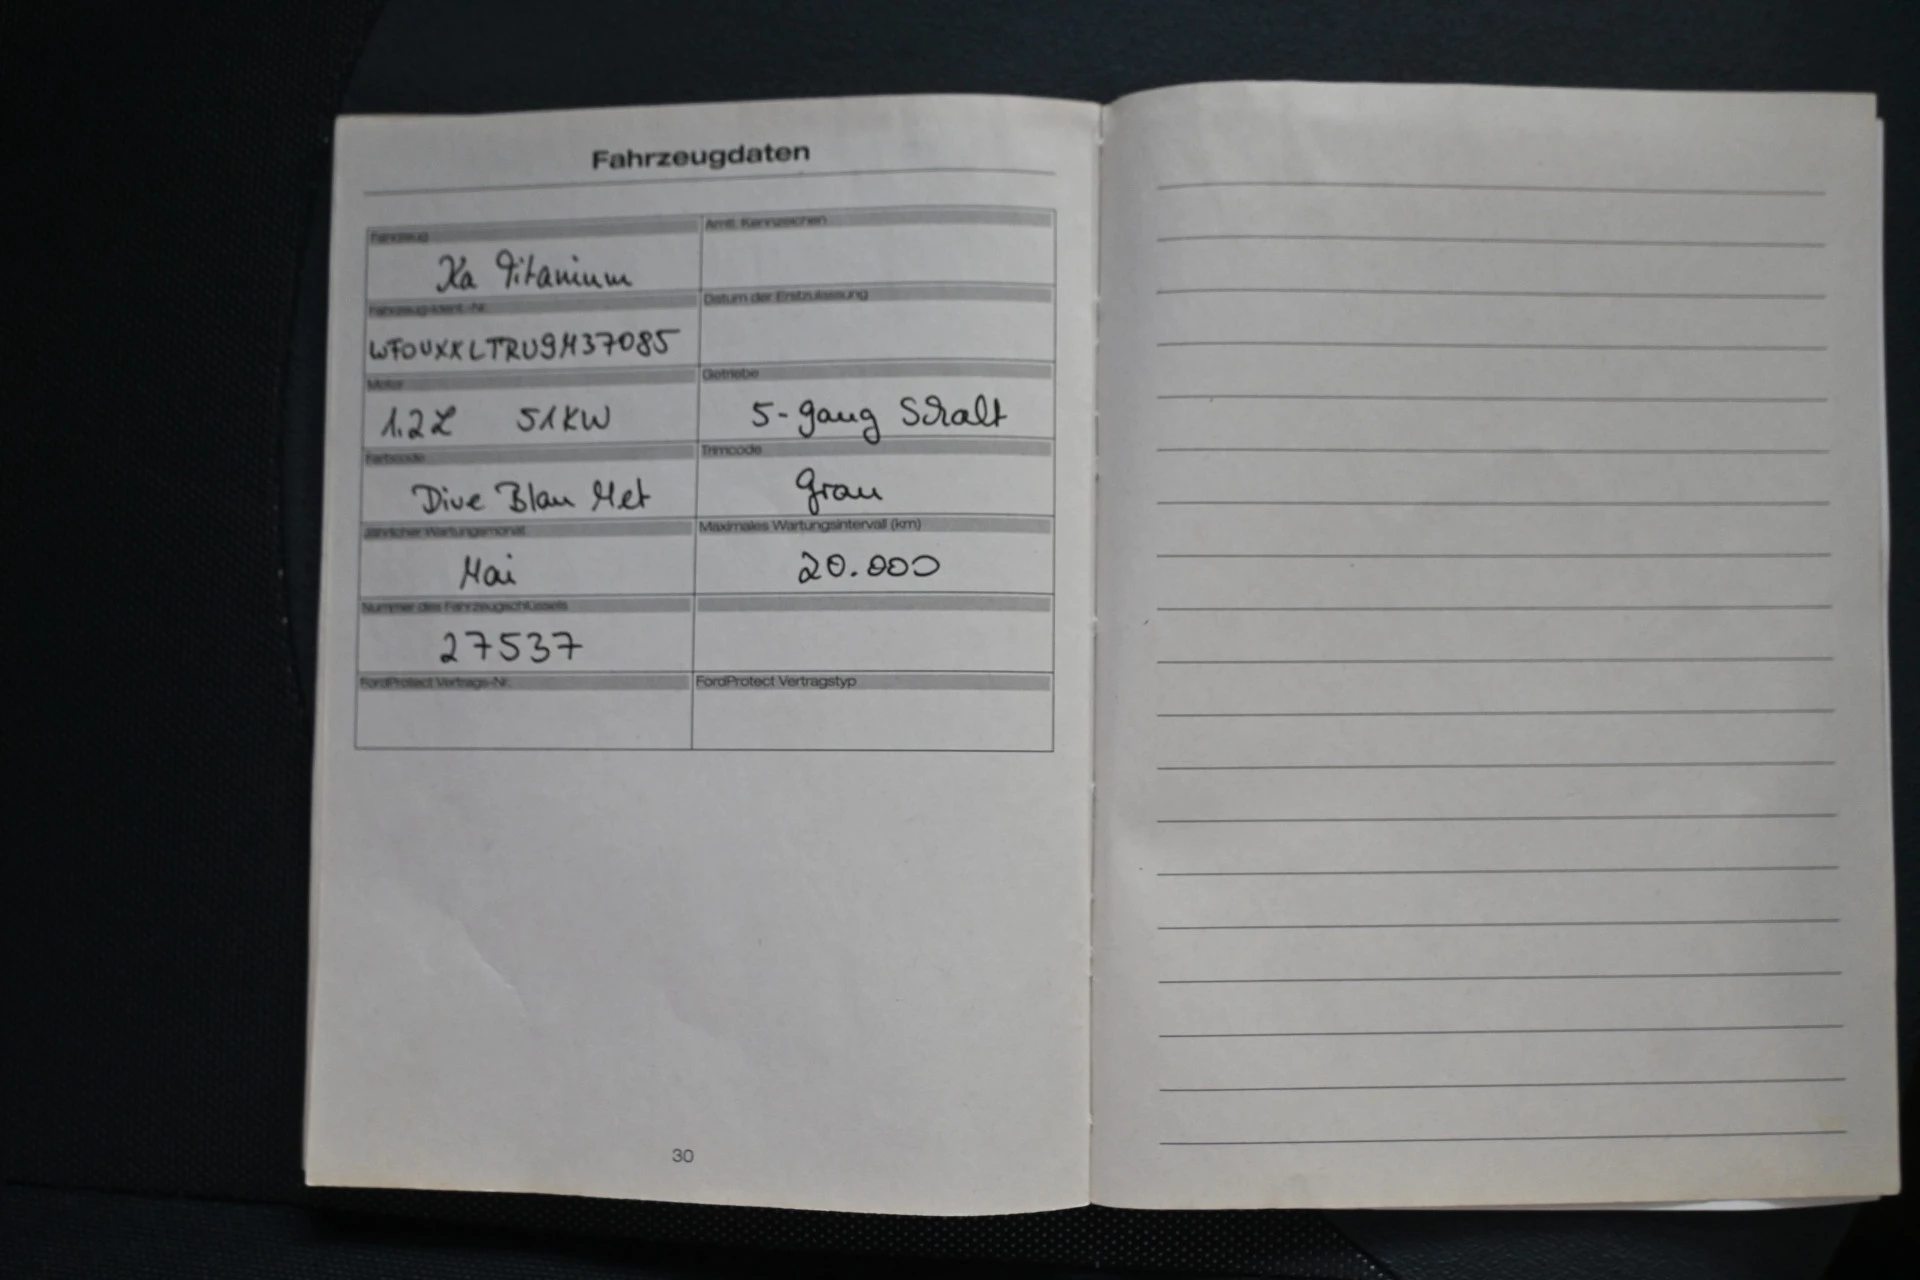 Fahrzeugdaten
Fahrzeug
Amtl. Kennzeichen
Ka Titanium
Fahrzeug-Ident.-Nr.
Datum der Erstzulassung
WF0UXXLTRU9M37085
Motor
Getriebe
1.2L 51KW
5-gang Schalt
Farbcode
Trimcode
Dive Blau Met
grau
Jährlicher Wartungsmonat
Maximales Wartungsintervall (km)
Mai
20.000
Nummer des Fahrzeugschlüssels
27537
FordProtect Vertrags-Nr.
FordProtect Vertragstyp
30